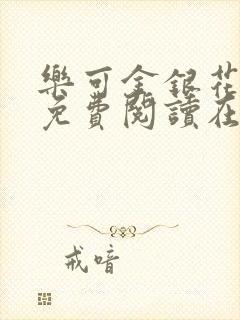 樂可金銀花
免費閱讀在
戒喑